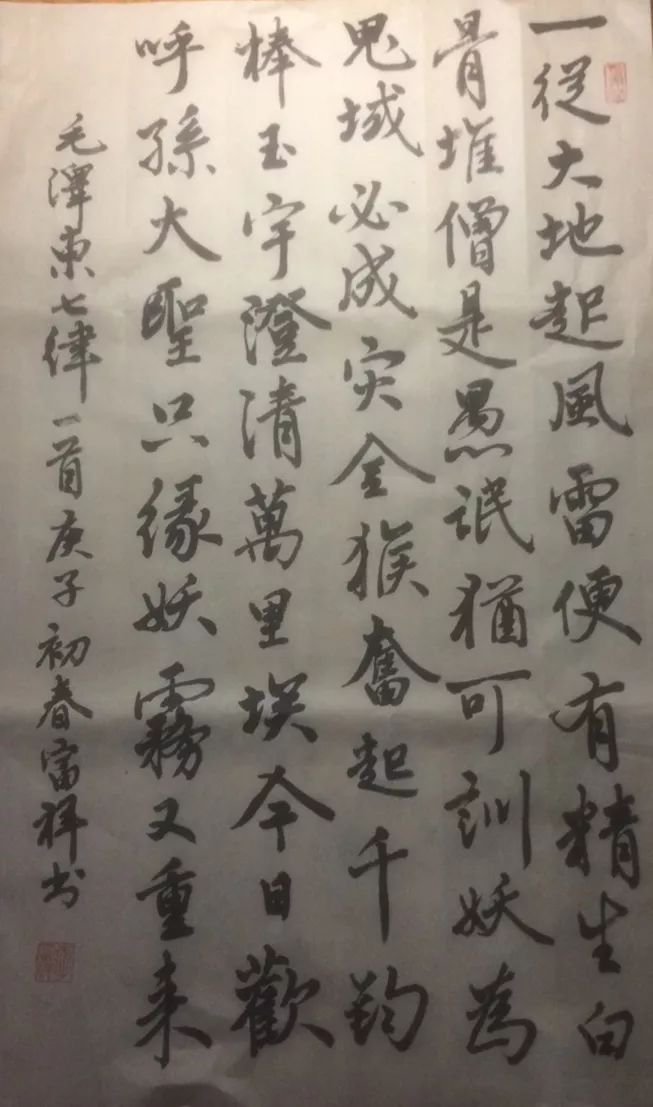 一從大地起風雷便有精生白
骨堆僧是愚氓猶可訓妖為
鬼域必成灾金猴奮起千鈞
棒玉宇澄清萬里埃今日歡
呼孫大聖只緣妖霧又重来
毛澤東七律一首庚子初春富祥书